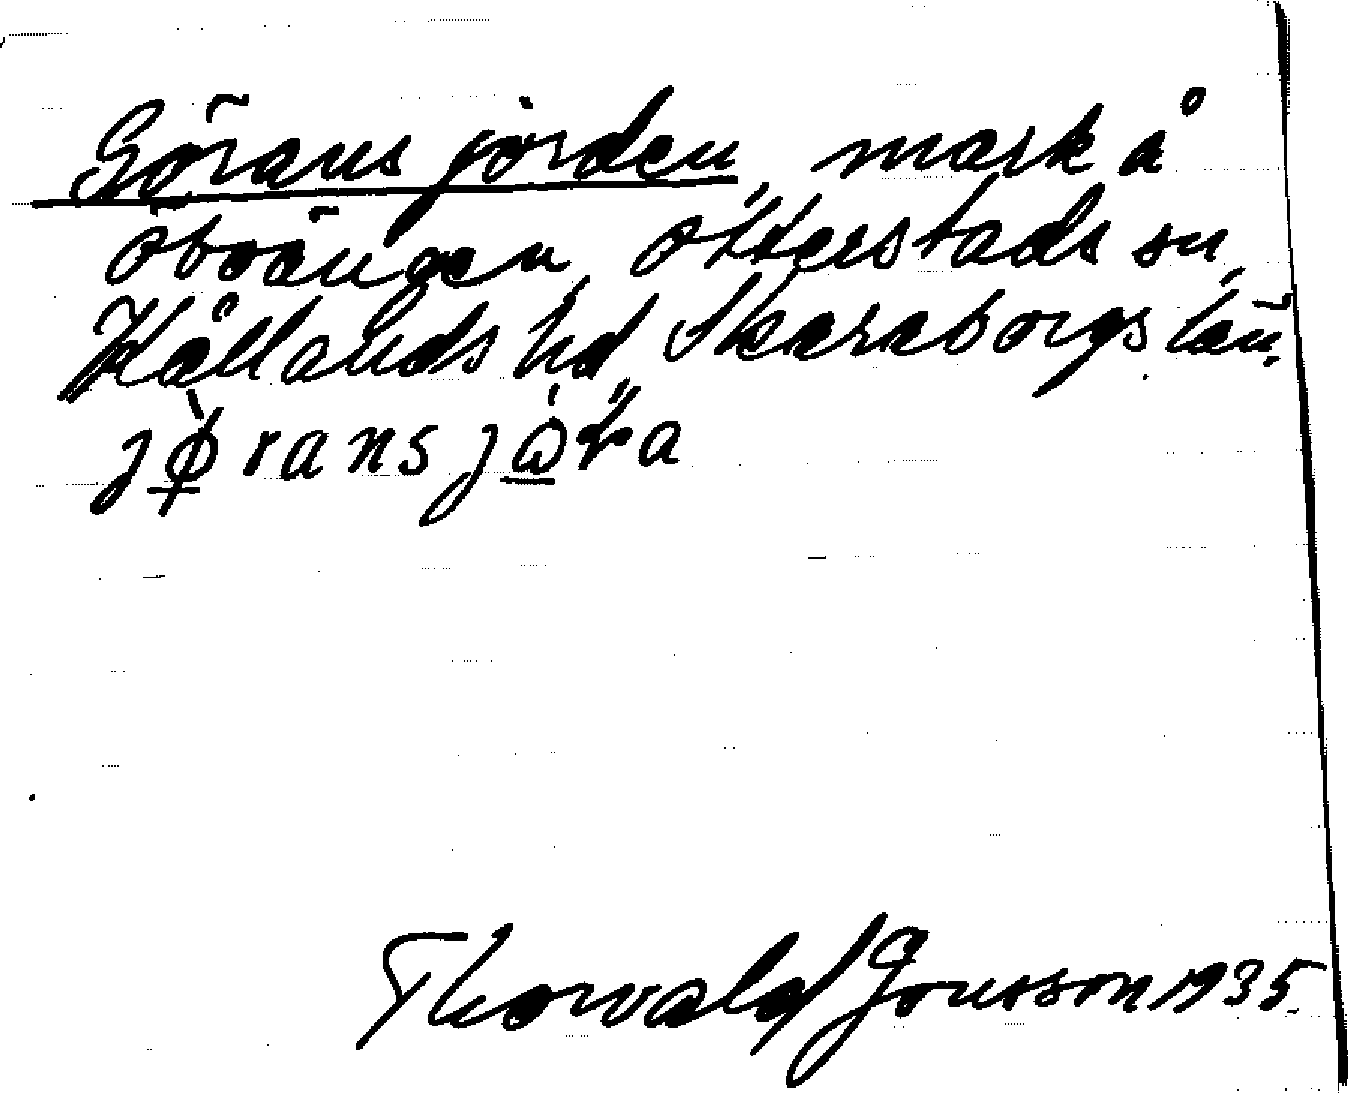 Görans jorden, mark å
Öboängen, Otterstads sn,
Kållands hd, Skaraborgs län.
Thorvald Jonsson 1935